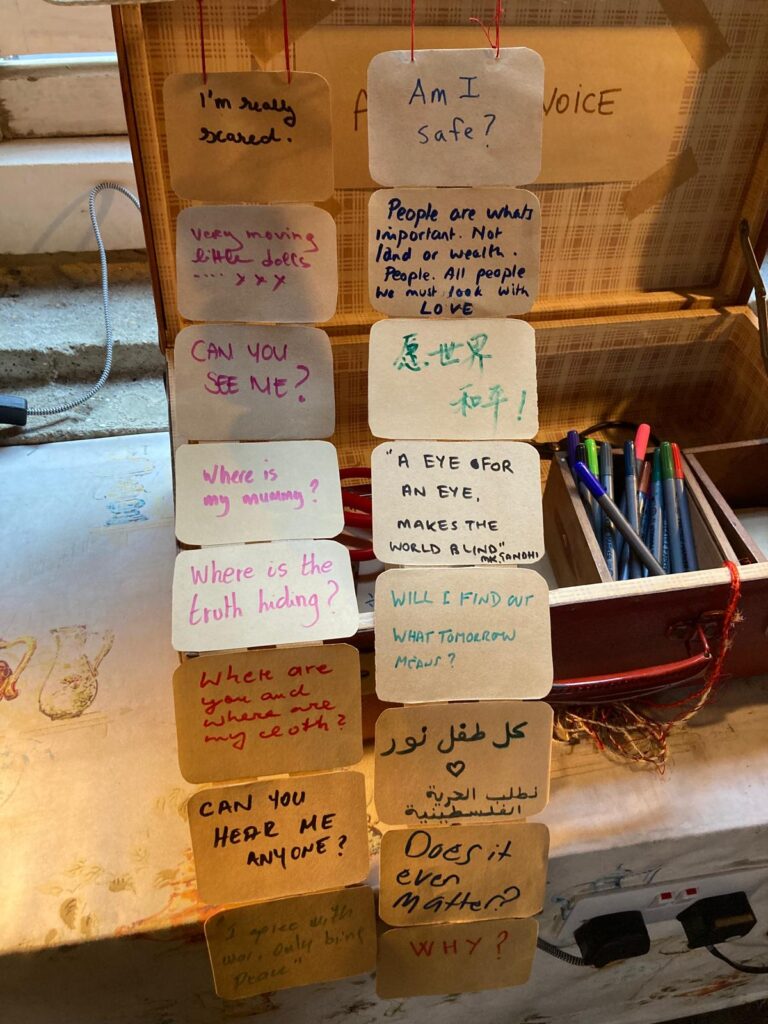 A
VOICE
I'm really
scared.
very moving
little dolls
.... x x x
CAN YOU
SEE ME?
Where is
my mummy?
Where is the
truth hiding?
Where are
you and
where are
my cloth?
CAN YOU
HEAR ME
ANYONE?
"I agree with
war. Only bring
Peace"
Am I
safe?
People are whats
important. Not
land or wealth.
People. All people
We must look with
LOVE
愿世界
和平!
"A EYE FOR
AN EYE,
MAKES THE
WORLD BLIND"
MK. GANDHI
WILL I FIND OUT
WHAT TOMORROW
MEANS?
كل طفل نور
نطلب الحرية
الفلسطينية
Does it
even
matter?
WHY?